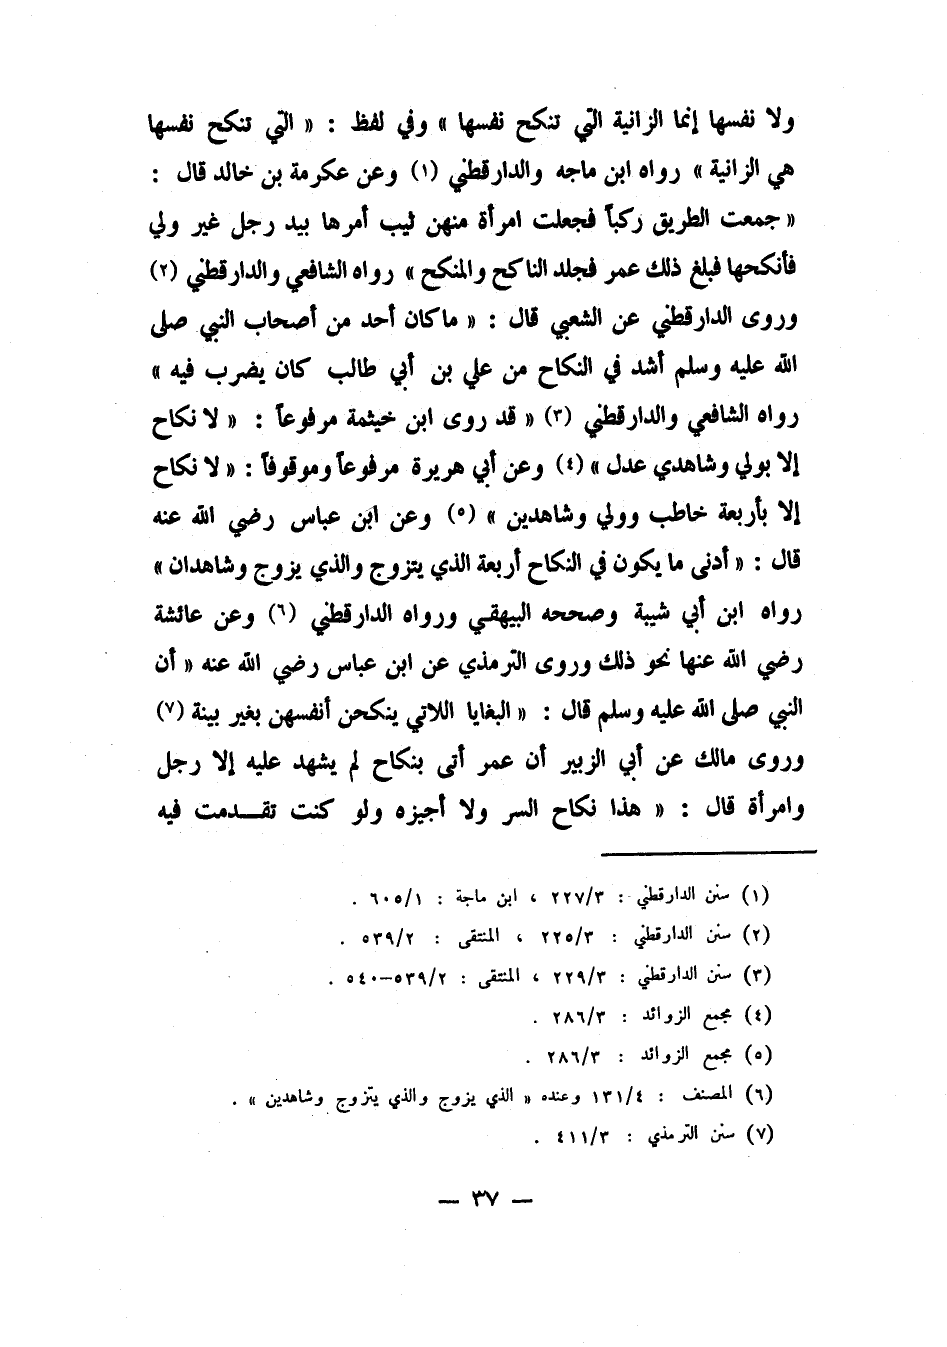 ولا نفسها إنما الزانية التي تنكح نفسها » وفي لفظ : « التي تنكح نفسها
هي الزانية » رواه ابن ماجه والدارقطني (١) وعن عكرمة بن خالد قال :
« جمعت الطريق ركباً فجعلت امرأة منهن ثيب أمرها بيد رجل غير ولي
فأنكحها فبلغ ذلك عمر فجلد الناكح والمنكح » رواه الشافعي والدارقطني (٢)
وروى الدارقطني عن الشعبي قال : « ماكان أحد من أصحاب النبي صلى
الله عليه وسلم أشد في النكاح من علي بن أبي طالب كان يضرب فيه »
رواه الشافعي والدارقطني (٣) « قد روى ابن خيثمة مرفوعاً : « لا نكاح
إلا بولي وشاهدي عدل » (٤) وعن أبي هريرة مرفوعاً وموقوفاً : « لا نكاح
إلا بأربعة خاطب وولي وشاهدين » (٥) وعن ابن عباس رضي الله عنه
قال : « أدنى ما يكون في النكاح أربعة الذي يتزوج والذي يزوج وشاهدان »
رواه ابن أبي شيبة وصححه البيهقي ورواه الدارقطني (٦) وعن عائشة
رضي الله عنها نحو ذلك وروى الترمذي عن ابن عباس رضي الله عنه « أن
النبي صلى الله عليه وسلم قال : « البغايا اللاتي ينكحن أنفسهن بغير بينة (٧)
وروى مالك عن أبي الزبير أن عمر أتى بنكاح لم يشهد عليه إلا رجل
وامرأة قال : « هذا نكاح السر ولا أجيزه ولو كنت تقـــدمت فيه
(١) سنن الدارقطني : ٢٢٧/٣ ، ابن ماجة : ٦٠٥/١ .
(٢) سنن الدارقطني : ٢٢٥/٣ ، المنتقى : ٥٣٩/٢ .
(٣) سنن الدارقطني : ٢٢٩/٣ ، المنتقى : ٥٣٩/٢–٥٤٠ .
(٤) مجمع الزوائد : ٢٨٦/٣ .
(٥) مجمع الزوائد : ٢٨٦/٣ .
(٦) المصنف : ١٣١/٤ وعنده « الذي يزوج والذي يتزوج وشاهدين » .
(٧) سنن الترمذي : ٤١١/٣ .
— ٣٧ —